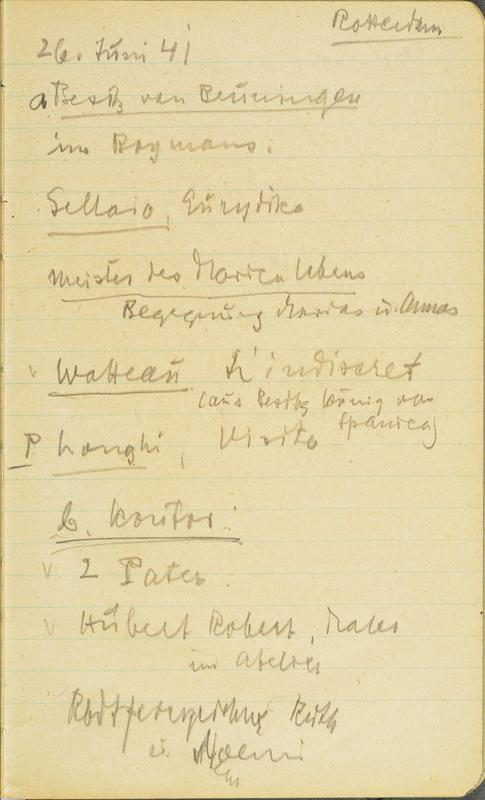 Rotterdam
26. Juni 41
a Besitz van Beuningen
im Boymans.
Sellaio, Eurydike
Meister des Marienlebens
Begegnung Marias u. Annas
Watteau L'indiscret
(aus Besitz König von
Spanien)
P Longhi, Visite
b. Kontor:
2 Pater
Hubert Robert, Maler
im Atelier
Ruth
u.